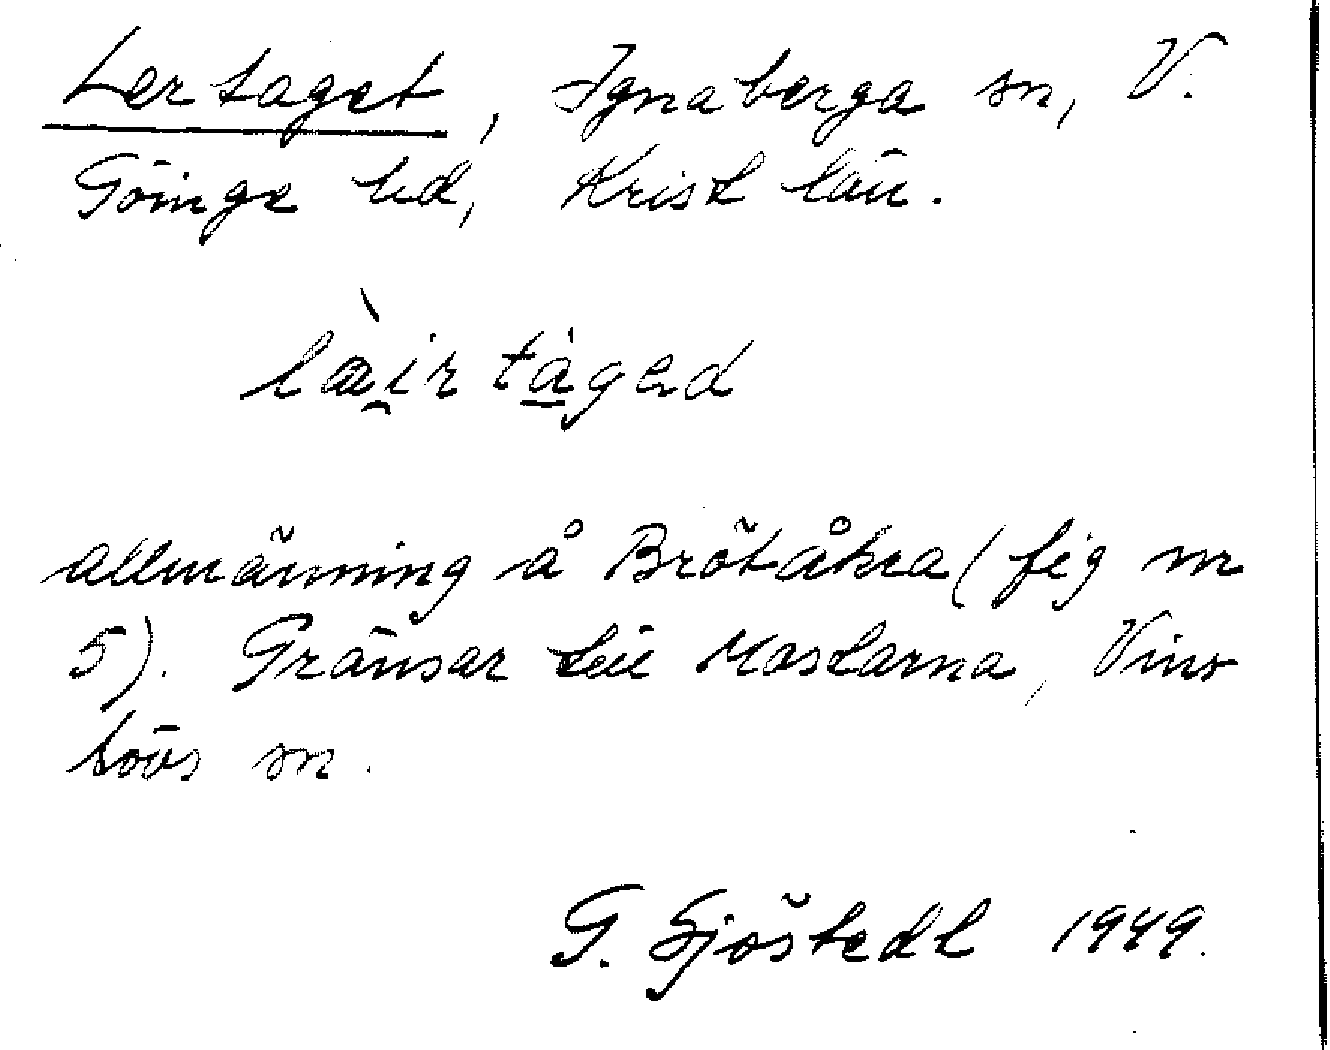 Lertaget, Ignaberga sn, V.
Göinge hd, Krist län.
læ̀i̯r táged
allmänning å Brötåkra (fig nr
5). Gränsar till Maslarna, Vins
lövs sn.
G. Sjöstedt 1949.